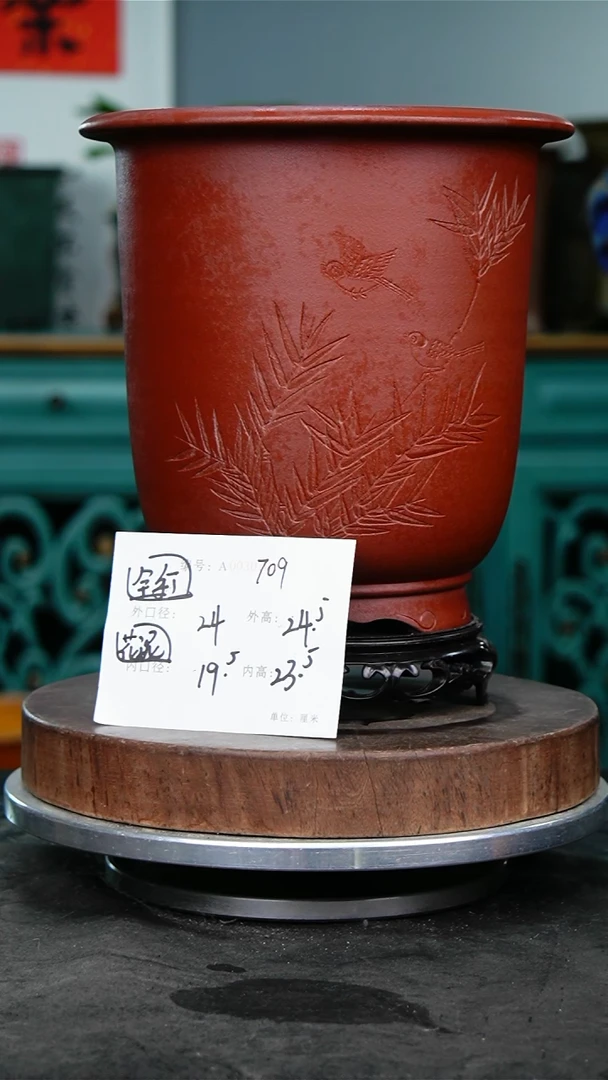 编号: A 709
全红
外口径: 24 外高: 24.5
花泥
内口径: 19.5 内高: 23.5
单位: 厘米